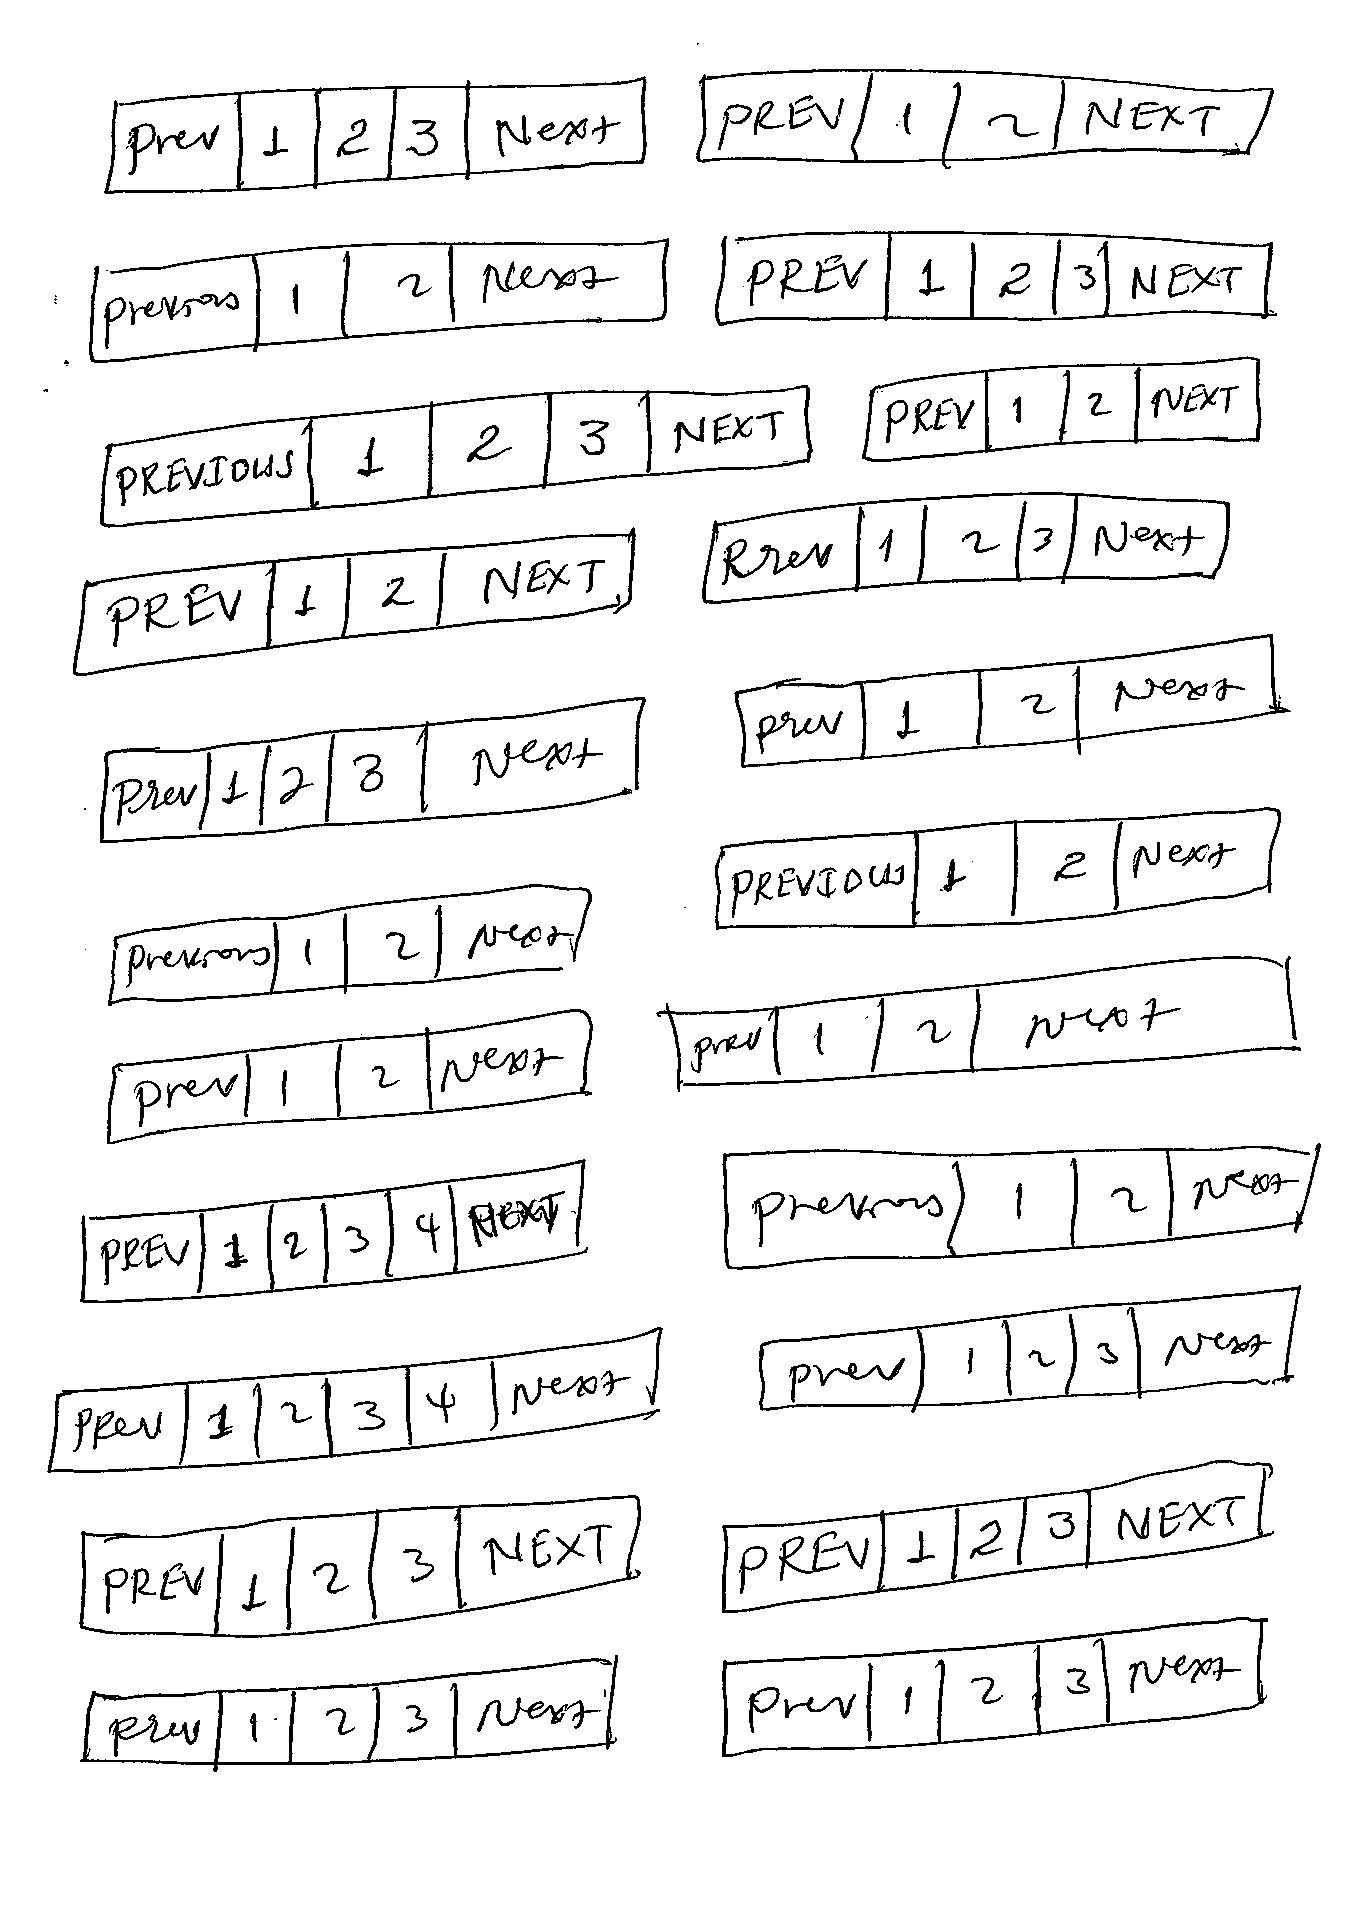 Prev 1 2 3 Next
PREV 1 2 NEXT
Previous 1 2 Next
PREV 1 2 3 NEXT
PREVIOUS 1 2 3 NEXT
PREV 1 2 NEXT
PREV 1 2 NEXT
Prev 1 2 3 Next
Prev 1 2 3 Next
prev 1 2 Next
PREVIOUS 1 2 Next
Previous 1 2 Next
prev 1 2 Next
prev 1 2 Next
PREV 1 2 3 4 NEXT
Previous 1 2 Next
PRev 1 2 3 4 Next
prev 1 2 3 Next
PREV 1 2 3 NEXT
PREV 1 2 3 NEXT
prev 1 2 3 Next
Prev 1 2 3 Next